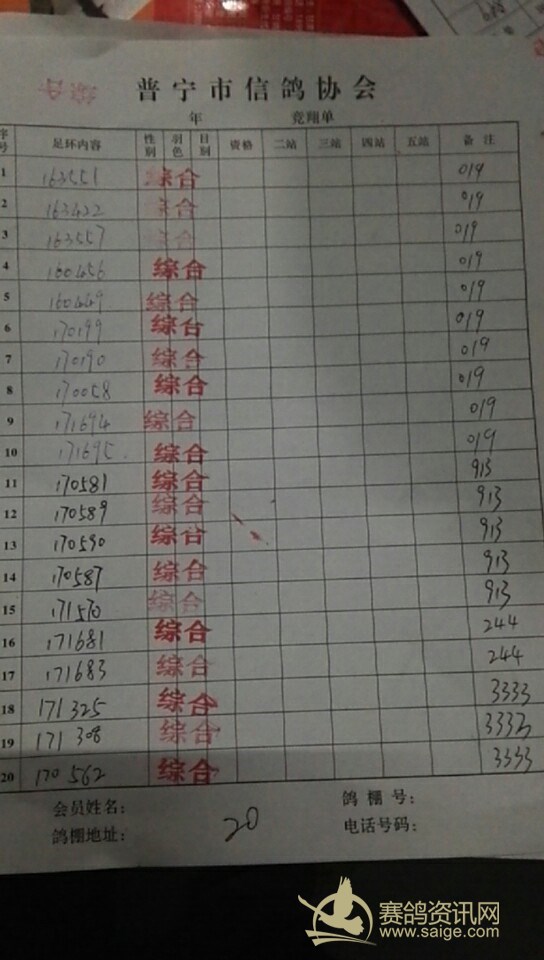 综合
普宁市信鸽协会
年 竞翔单
序号 足环内容 性别 羽色 目别 资格 二站 三站 四站 五站 备注
1 163551 综合 019
2 163422 综合 019
3 163557 综合 019
4 160456 综合 019
5 160449 综合 019
6 170199 综合 019
7 170190 综合 019
8 170058 综合 019
9 171694 综合 019
10 171695 综合 019
11 170581 综合 913
12 170589 综合 913
13 170590 综合 913
14 170587 综合 913
15 171570 综合 913
16 171681 综合 244
17 171683 综合 244
18 171325 综合 3333
19 171308 综合 3333
20 170562 综合 3333
会员姓名: 鸽棚号:
鸽棚地址: 20 电话号码:
赛鸽资讯网
www.saige.com